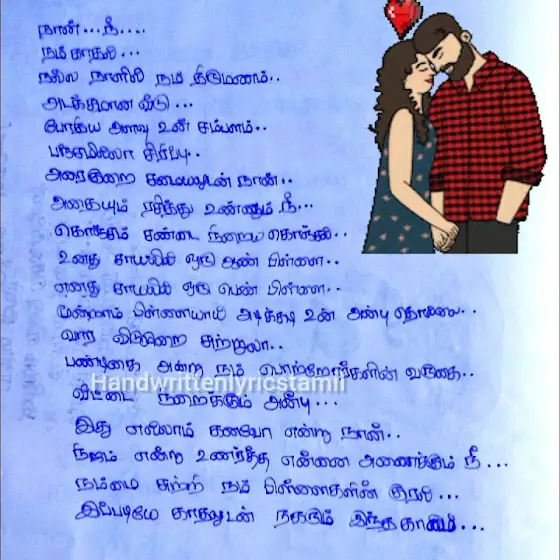 நான்... நீ....
நம் காதல்...
நல்ல நாளில் நம் திருமணம்..
அடக்கமான வீடு...
போதிய அளவு உன் சம்பளம்..
பஞ்சமில்லா சிரிப்பு..
அரைகுறை சமையலுடன் நான்..
அதையும் ரசித்து உண்ணும் நீ...
கொஞ்சம் சண்டை நிறைய கொஞ்சல்..
உனது சாயலில் ஒரு ஆண் பிள்ளை..
எனது சாயலில் ஒரு பெண் பிள்ளை..
மூன்றாம் பிள்ளையாய் அடிக்கடி உன் அன்பு தொல்லை..
வார விடுமுறை சுற்றுலா..
பண்டிகை அன்று நம் பெற்றோர்களின் வருகை..
Handwrittenlyricstamil
வீட்டை நிறைக்கும் அன்பு...
இது எல்லாம் கனவோ என்று நான்..
நிஜம் என்று உணர்த்த என்னை அணைக்கும் நீ...
நம்மை சுற்றி நம் பிள்ளைகளின் குரல்...
இப்படியே காதலுடன் நகரும் இந்த காலம்...